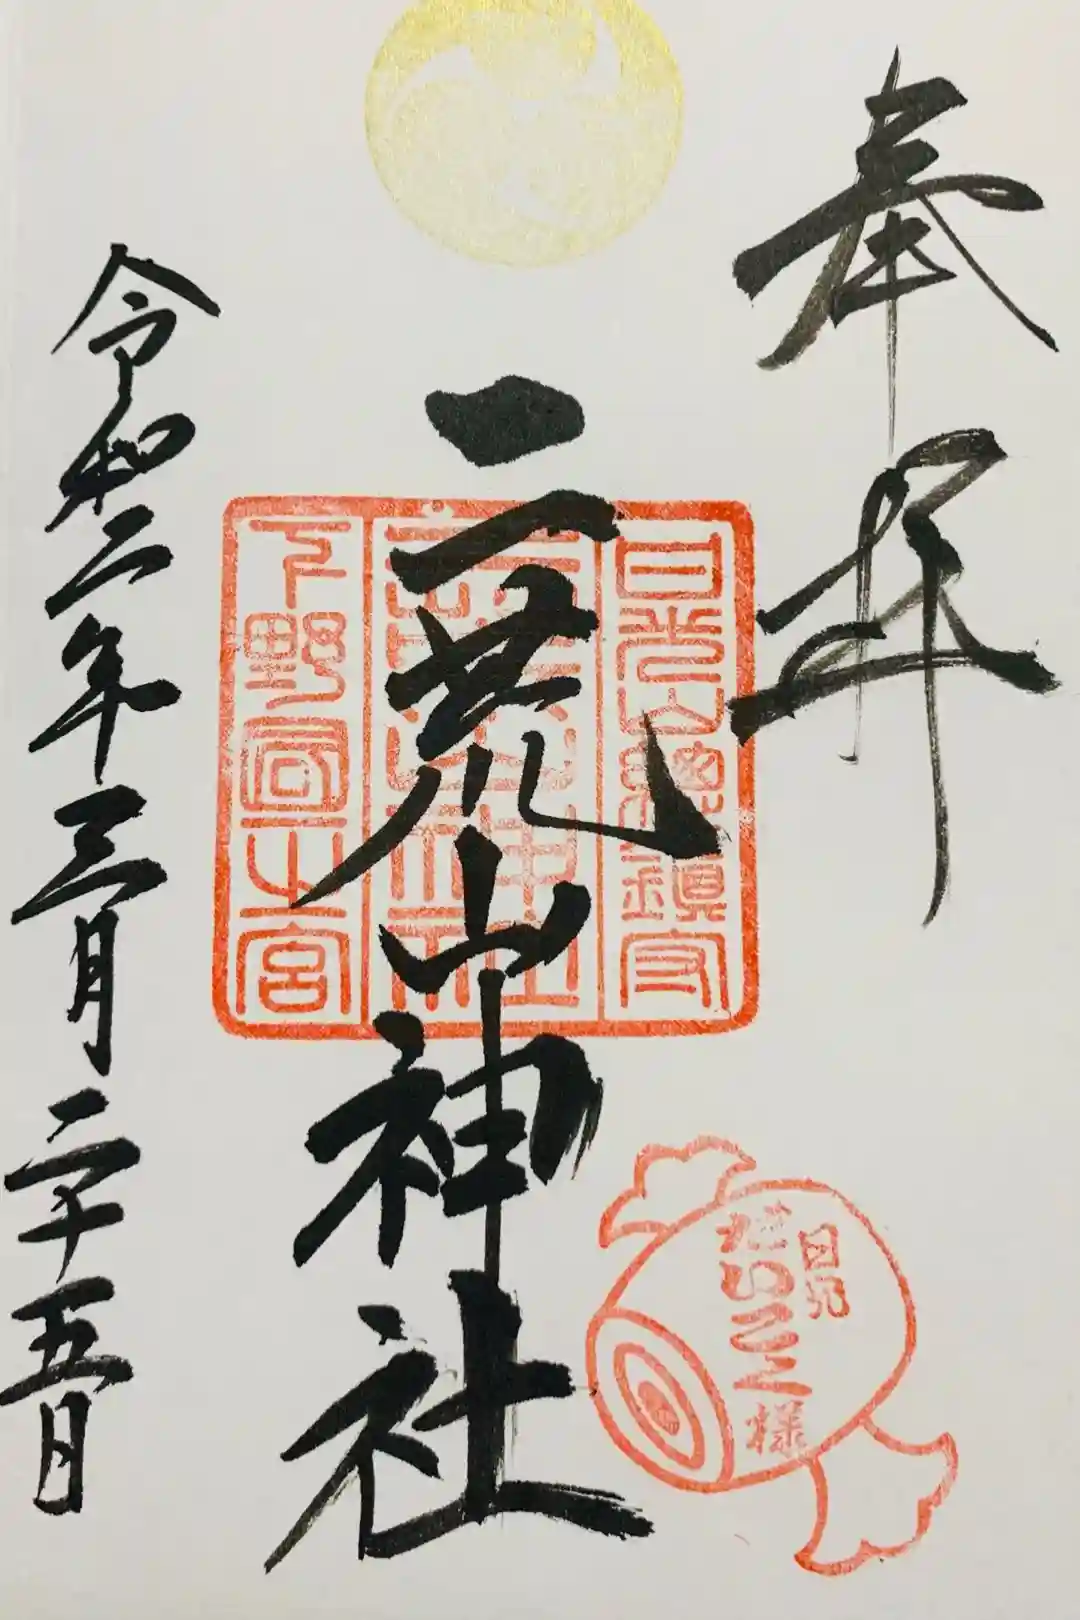 奉拝
日光山総鎮守
二荒山神社
下野国一宮
二荒山神社
日光
だいこく様
令和二年三月二十五日